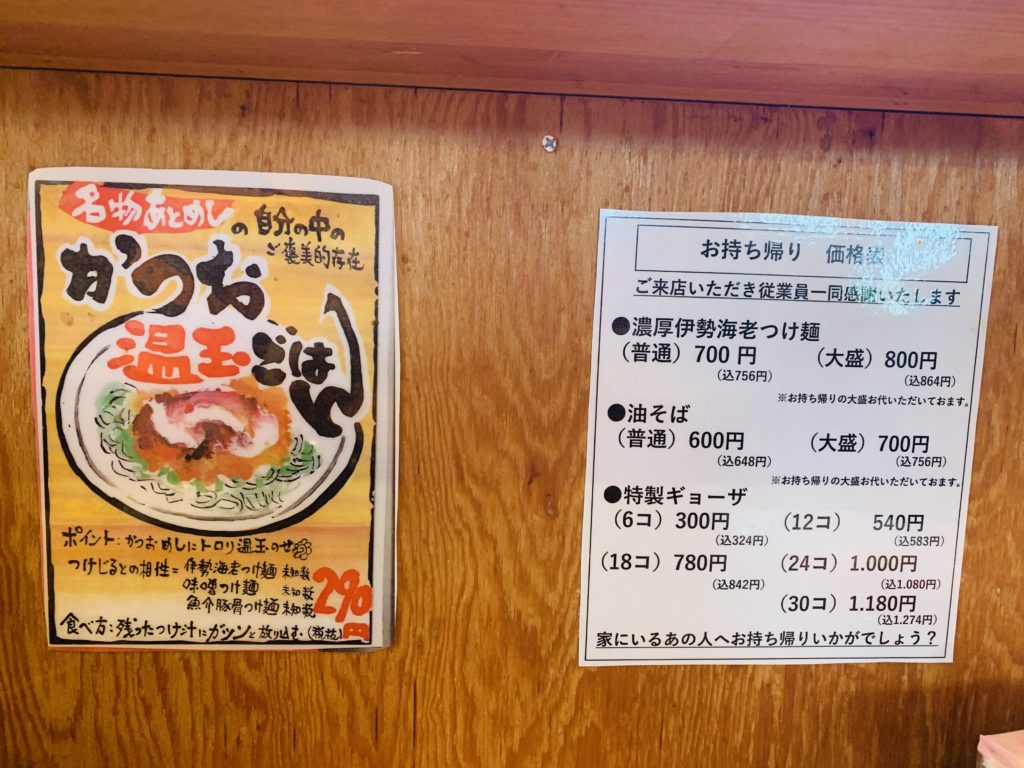 名物あとめし
の自分の中の
ご褒美的存在
かつお
温玉ごはん
ポイント：かつおめしにトロリ温玉のせ
つけじるとの相性＝伊勢海老つけ麺 未知数
味噌つけ麺 未知数
魚介豚骨つけ麺 未知数
290円
食べ方：残ったつけ汁にガツンと放り込む。(税抜)
お持ち帰り 価格表
ご来店いただき従業員一同感謝いたします
●濃厚伊勢海老つけ麺
（普通）700円 （大盛）800円
（込756円） （込864円）
※お持ち帰りの大盛お代いただいておます。
●油そば
（普通）600円 （大盛）700円
（込648円） （込756円）
※お持ち帰りの大盛お代いただいておます。
●特製ギョーザ
（6コ）300円 （12コ） 540円
（込324円） （込583円）
（18コ）780円 （24コ）1.000円
（込842円） （込1.080円）
（30コ）1.180円
（込1.274円）
家にいるあの人へお持ち帰りいかがでしょう？